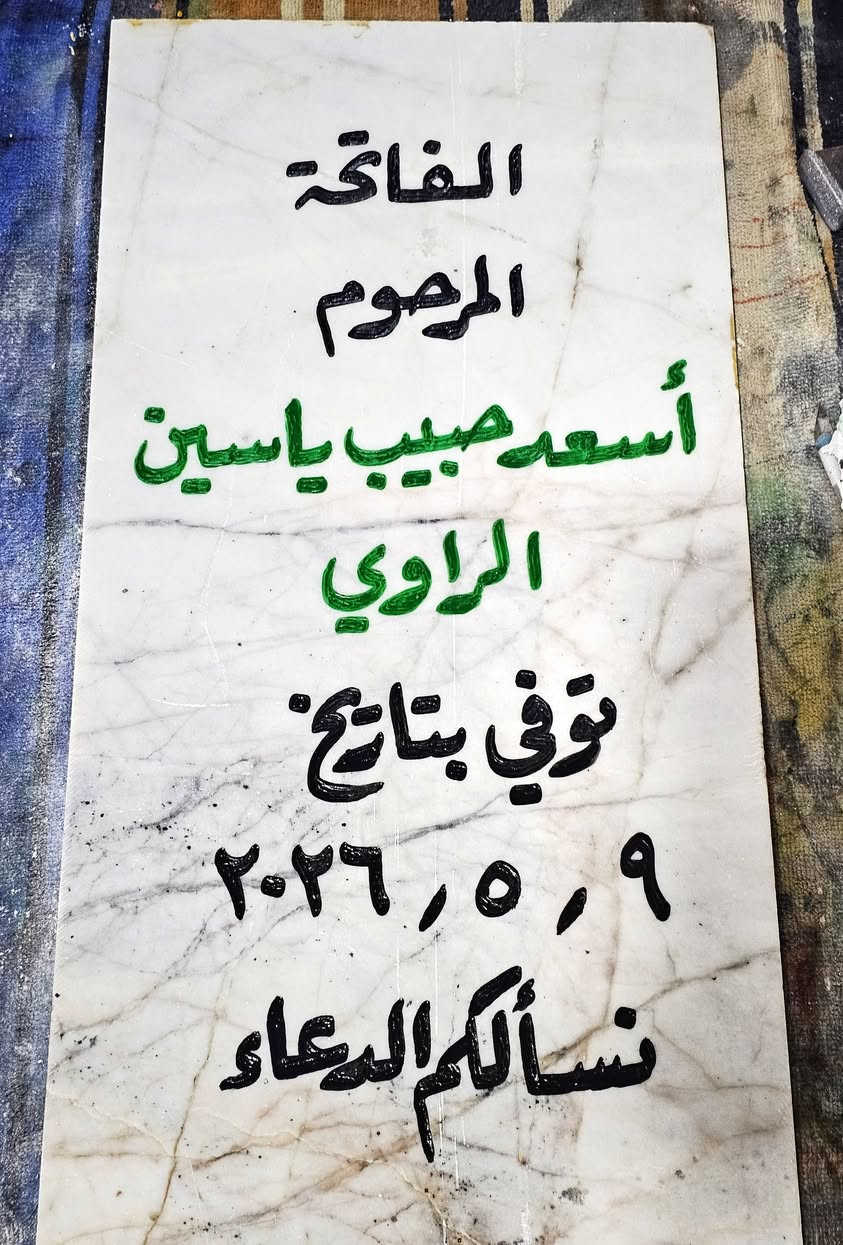 الفاتحة
المرحوم
أسعد حبيب ياسين
الراوي
توفي بتاريخ
٩ / ٥ / ٢٠٢٦
نسألكم الدعاء